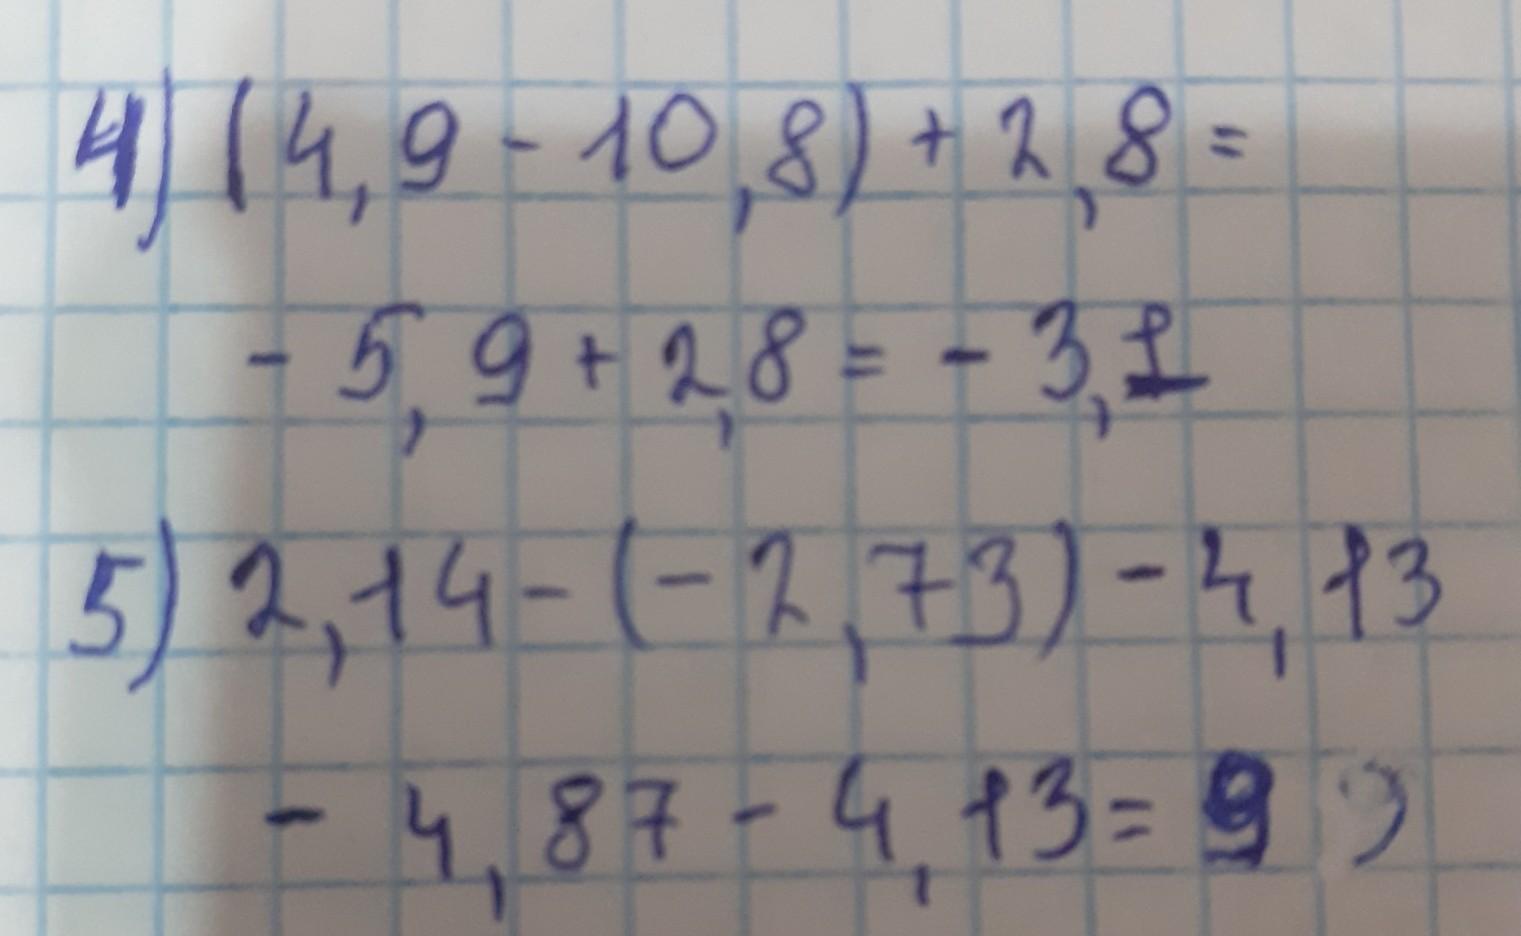 4) (4,9 - 10,8) + 2,8 =
- 5,9 + 2,8 = - 3,1
5) 2,14 - (- 2,73) - 4,13
- 4,87 - 4,13 = 9